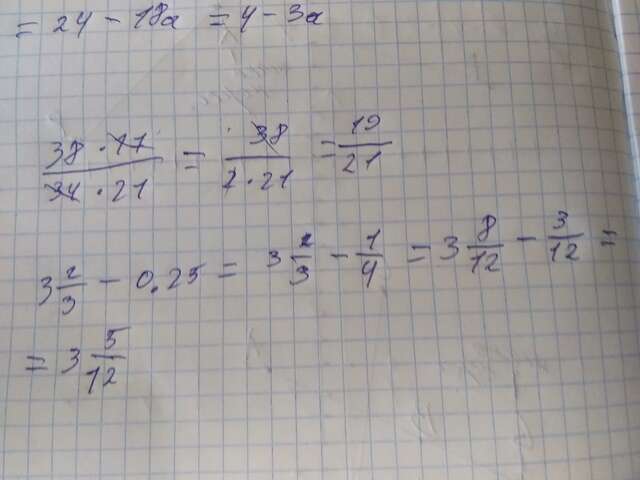 = 24 - 18a = 4 - 3a
38 · 17 / 34 · 21 = 38 / 2 · 21 = 19 / 21
3 2/3 - 0.25 = 3 2/3 - 1/4 = 3 8/12 - 3/12 =
= 3 5/12